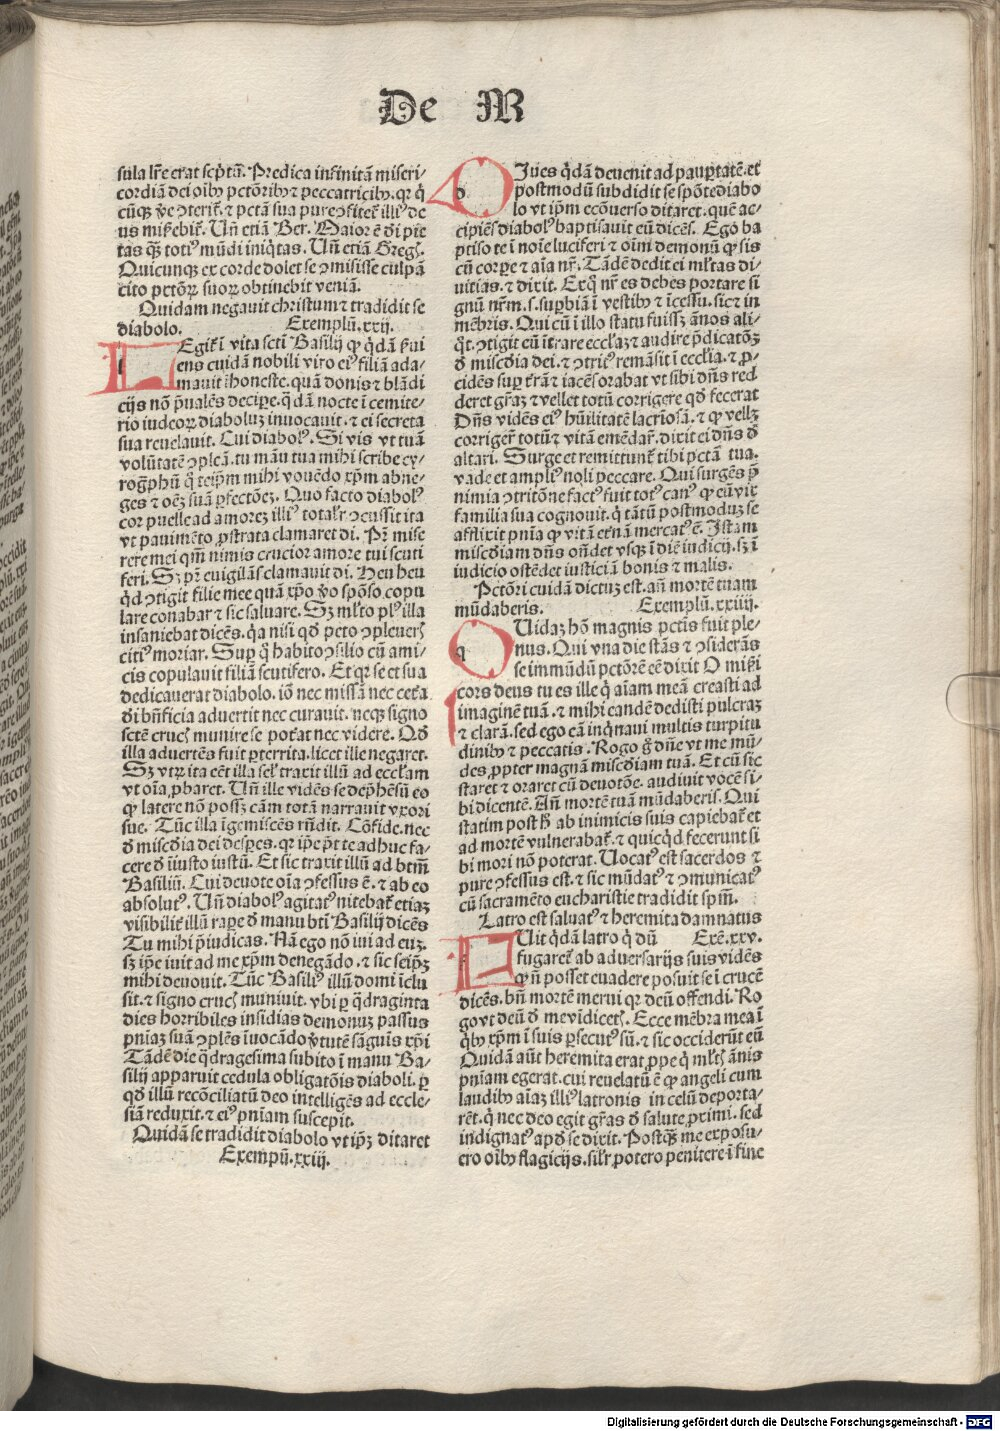 De M
sula lr̃e erat scp̃tã. Predica infinitã miseri/
cordiã dei oĩbꝰ pctõribꝰ ⁊ peccatricibꝰ. qr q̃
cũqꝫ ṽe ꝯterit̃. ⁊ pctã sua pure ꝯfitet̃ illiꝰ de
us mis̃ebit̃. Uñ etiã Ber. Maior ẽ d̃i pie
tas qꝫ̃ totiꝰ mũdi iniq̃tas. Uñ etiã Greg̃.
Quicunqꝫ ex corde dolet se ꝯmisisse culpã
cito pctõꝝ suoꝝ obtinebit veniã.
Quidam negauit christum ⁊ tradidit se
diabolo. Exemplũ. xxij.
LEgit̃ ĩ vita scti Basilij ꝙ q̃dã s̃ui
ens cuidã nobili viro eiꝰ filiã ada-
mauit ĩhoneste. quã donis ⁊ blãdi
cijs nõ p̃ualẽs decipe. q̃dã nocte ĩ cemite/
rio iudeoꝝ diabolũ inuocauit. ⁊ ei secreta
sua reuelauit. Cui diabolꝰ. Si vis vt tuã
volũtatẽ ꝯpleã. tu manu tua mihi scribe cy/
rog̃phũ q̃ teip̃m mihi vouẽdo xp̃m abne/
ges ⁊ oẽꝫ suã ꝓfectõeꝫ. Quo facto diabolꝰ
cor puelle ad amoreꝫ illiꝰ totalr̃ ꝯcussit ita
vt pauimẽto ꝓstrata clamaret di. Pr̃ mise
rere mei qm̃ nimis crucior amore tui scuti
feri. Sꝫ pr̃ euigilãs clamauit di. Heu heu
q̃d ꝯtigit filie mee quã xp̃o ṽo spõso copu
lare conabar ⁊ sic saluare. Sꝫ ml̃to plꝰ illa
insaniebat dicẽs. q̃a nisi qđ peto ꝯpleueris
citiꝰ moriar. Sup q̃ habito ꝯsilio cũ ami/
cis copulauit filiã scutifero. Et qr se et sua
dedicauerat diabolo. iõ nec missã nec cet̃a
d̃i bñficia aduertit nec curauit. neqꝫ signo
scte crucis munire se poterat nec videre. Qđ
illa aduertẽs fuit ꝑterrita. licet ille negaret.
Sꝫ vtꝝ ita eẽt illa sel̃ traxit illũ ad eccl̃am
vt oĩa ꝓbaret. Uñ ille vidẽs se dep̃hẽsũ eo
ꝙ latere nõ possꝫ cãm totã narrauit vxori
sue. Tũc illa ĩgemiscẽs rñdit. Cõfide. nec
đ misc̃dia dei despes. qr ip̃e p̃t te adhuc fa-
cere đ ĩiusto iustũ. Et sic traxit illũ ad btm̃
Basiliũ. Cui deuote oĩa ꝯfessus ẽ. ⁊ ab eo
absolutꝰ. Uñ diabolꝰ agitatꝰ nitebat̃ etiaꝫ
visibilit̃ illũ rape đ manu bti Basilij dicẽs
Tu mihi p̃iudicas. Nã ego nõ iui ad euꝫ.
sꝫ ip̃e iuit ad me xp̃m denegãdo. ⁊ sic seip̃ꝫ
mihi deuouit. Tũc Basiliꝰ illũ domi ĩclu
sit. ⁊ signo crucis muniuit. vbi ꝑ q̃draginta
dies horribiles insidias demonuꝫ passus
pñiaꝫ suã ꝯplẽs ĩuocãdo ṽtutẽ sãguĩs xp̃i
Tãdẽ die q̃dragesima subito ĩ manu Ba-
silij apparuit cedula obligatõis diaboli. ꝑ
qđ illũ recõciliatũ deo intelligẽs ad eccle/
siã reduxit. ⁊ eiꝰ pñiam suscepit.
Quidã se tradidit diabolo vt ip̃ꝫ ditaret
Exempũ. xxiij.
DIues q̃dã deuenit ad paup̃tatẽ. et
postmodũ subdidit se spõte diabo
lo vt ip̃m ecõuerso ditaret. quẽ ac-
cipiẽs diabolꝰ baptisauit eũ dicẽs. Ego ba
ptiso te ĩ noĩe luciferi ⁊ oĩm demonũ ꝙ sis
cũ corpe ⁊ aĩa nr̃. Tãdẽ dedit ei ml̃tas di/
uitias. ⁊ dixit. Exq̃ nr̃ es debes portare si
gnũ nr̃m. s. supbiã ĩ vestibꝰ ⁊ ĩcessu. sic ⁊ in
mẽbris. Qui cũ ĩ illo statu fuissꝫ ãnos ali/
q̃t. ꝯtigit eũ ĩtrare eccl̃aꝫ ⁊ audire p̃dicatõꝫ
đ misc̃dia dei. ⁊ ꝯtritꝰ remãsit ĩ eccl̃ia. ⁊ ꝓ-
cidẽs sup t̃rã ⁊ iacẽs orabat vt sibi dñs red
deret gr̃aꝫ ⁊ vellet totũ corrigere qđ fecerat
Dñs vidẽs eiꝰ hũilitatẽ lacrĩosã. ⁊ ꝙ vellꝫ
corriger̃ totũ ⁊ vitã emẽdar̃. dixit ei dñs đ
altari. Surge et remittunt̃ tibi pctã tua.
vade et ampliꝰ noli peccare. Qui surgẽs p̃
nimia ꝯtritõne factꝰ fuit totꝰ canꝰ ꝙ eũ vix
familia sua cognouit. q̃ tãtũ postmoduꝫ se
afflixit pñia ꝙ vitã et̃nã mercatꝰ ẽ. Istam
misc̃diam dñs oñdet vsqꝫ ĩ diẽ iudicij. sꝫ ĩ
iudicio ostẽdet iusticiã bonis ⁊ malis.
Pctõri cuidã dictuꝫ est. añ mortẽ tuam
mũdaberis. Exemplũ. xxiiij.
QUidaꝫ hõ magnis pctis fuit ple/
nus. Qui vna die stãs ⁊ ꝯsiderãs
se immũdũ pctõrẽ eẽ dixit O mis̃i
cors deus tu es ille q̃ aĩam meã creasti ad
imaginẽ tuã. ⁊ mihi eandẽ dedisti pulcraꝫ
⁊ clarã. sed ego eã inq̃naui multis turpitu
dinibꝰ ⁊ peccatis. Rogo g̃ dñe vt me mũ/
des ꝓpter magnã misc̃diam tuã. Et cũ sic
staret ⁊ oraret cũ deuotõe. audiuit vocẽ si/
bi dicentẽ. Añ mortẽ tuã mũdaberis. Qui
statim post h̃ ab inimicis suis capiebat̃ et
ad mortẽ vulnerabat̃. ⁊ quicq̃d fecerunt si
bi mori nõ poterat. Uocatꝰ est sacerdos ⁊
pure ꝯfessus est. ⁊ sic mũdatꝰ ⁊ ꝯmunicatꝰ
cũ sacramẽto eucharistie tradidit spm̃.
Latro est saluatꝰ ⁊ heremita damnatus
FUit q̃dã latro q̃ dũ Exẽ. xxv.
fugaret̃ ab aduersarijs suis vidẽs
ꝙ ñ posset euadere posuit se ĩ crucẽ
dicẽs. bñ mortẽ merui qr deũ offendi. Ro
go vt deũ đ me vĩdicetis. Ecce mẽbra mea ĩ
q̃bꝰ xp̃m ĩ suis ꝑsecutꝰ sũ. ⁊ sic occiderũt eũ
Quidã aũt heremita erat ꝓpe q̃ ml̃tis ãnis
pñiam egerat. cui reuelatũ ẽ ꝙ angeli cum
laudibꝰ aĩaꝫ illiꝰ latronis in celũ deporta-
rẽt. q̃ nec deo egit gr̃as đ salute ꝓximi. sed
indignatꝰ apđ se dixit. Postqꝫ̃ me exposu/
ero oĩbꝰ flagicijs. sil̃r potero penitere ĩ fine
Digitalisierung gefördert durch die Deutsche Forschungsgemeinschaft - DFG